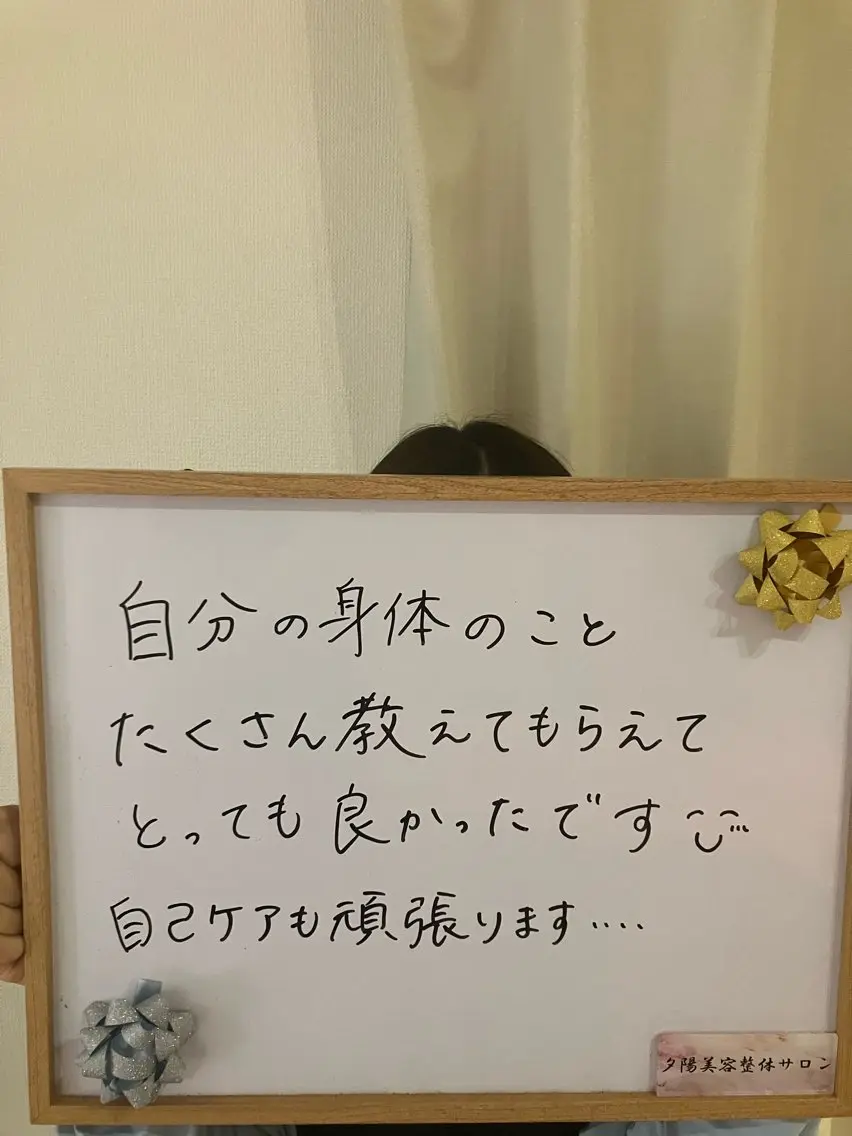 自分の身体のこと
たくさん教えてもらえて
とっても良かったです
自己ケアも頑張ります....
夕陽美容整体サロン